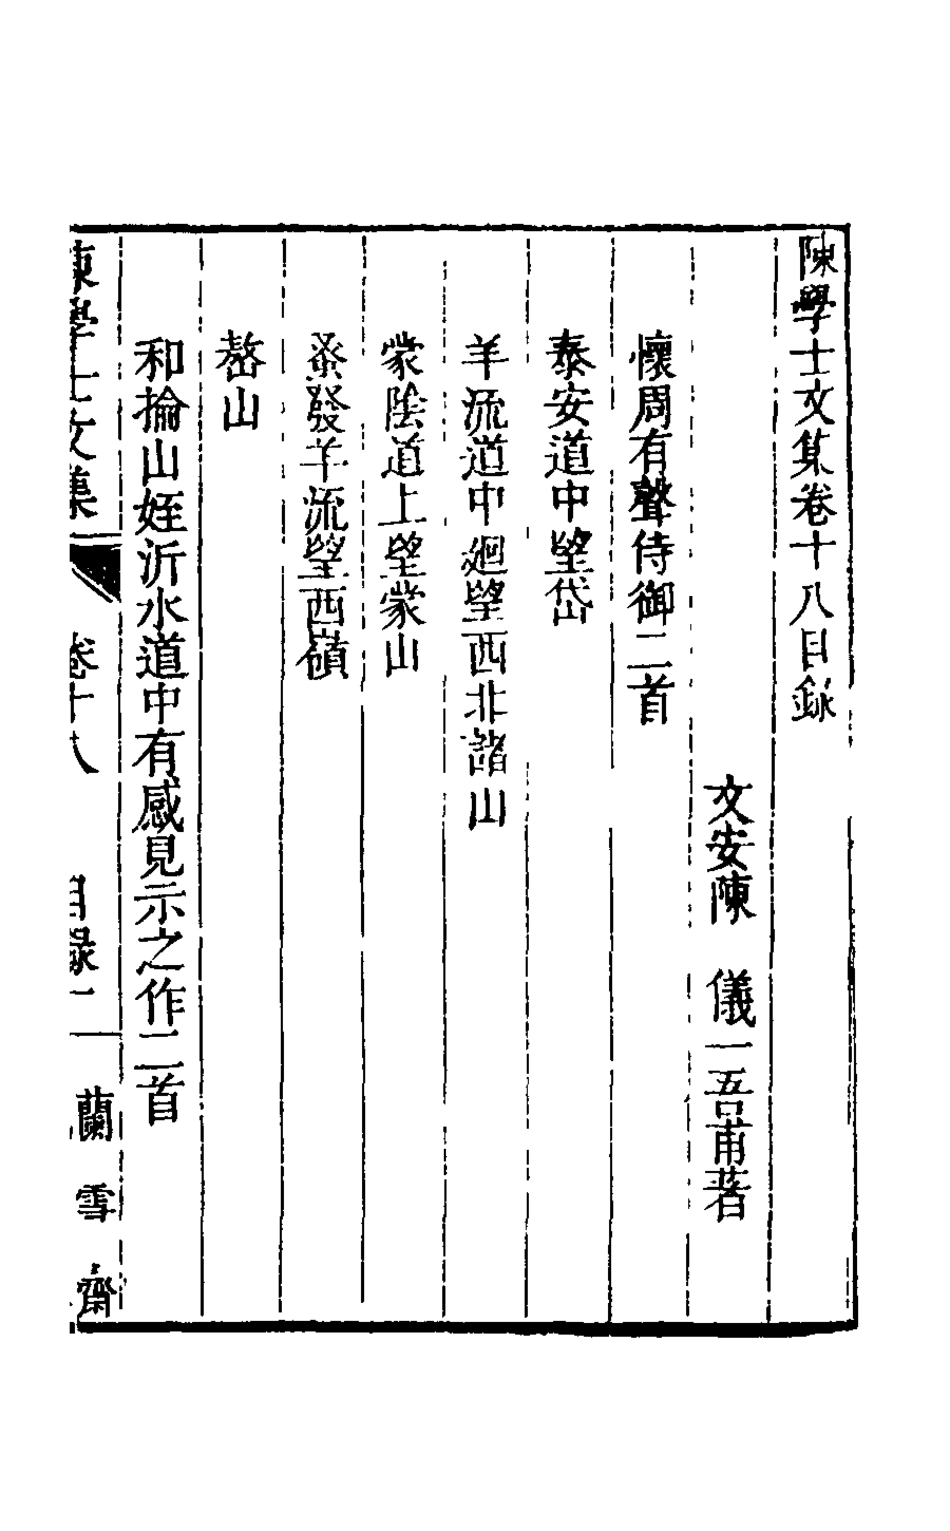 陳學士文集卷十八目錄
文安陳 儀一吾甫著
懷周有聲侍御二首
泰安道中望岱
羊流道中廻望西北諸山
蒙陰道上望蒙山
蚤發羊流望西嶺
嶅山
和掄山姪沂水道中有感見示之作二首
陳學士文集 卷十八 目錄二 蘭雪齋